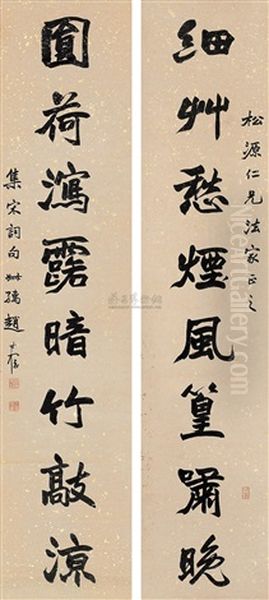 松源仁兄法家正之
細艸愁煙風篁嘯晚
圓荷瀉露暗竹敲涼
集宋詞句 叔孺趙時棡